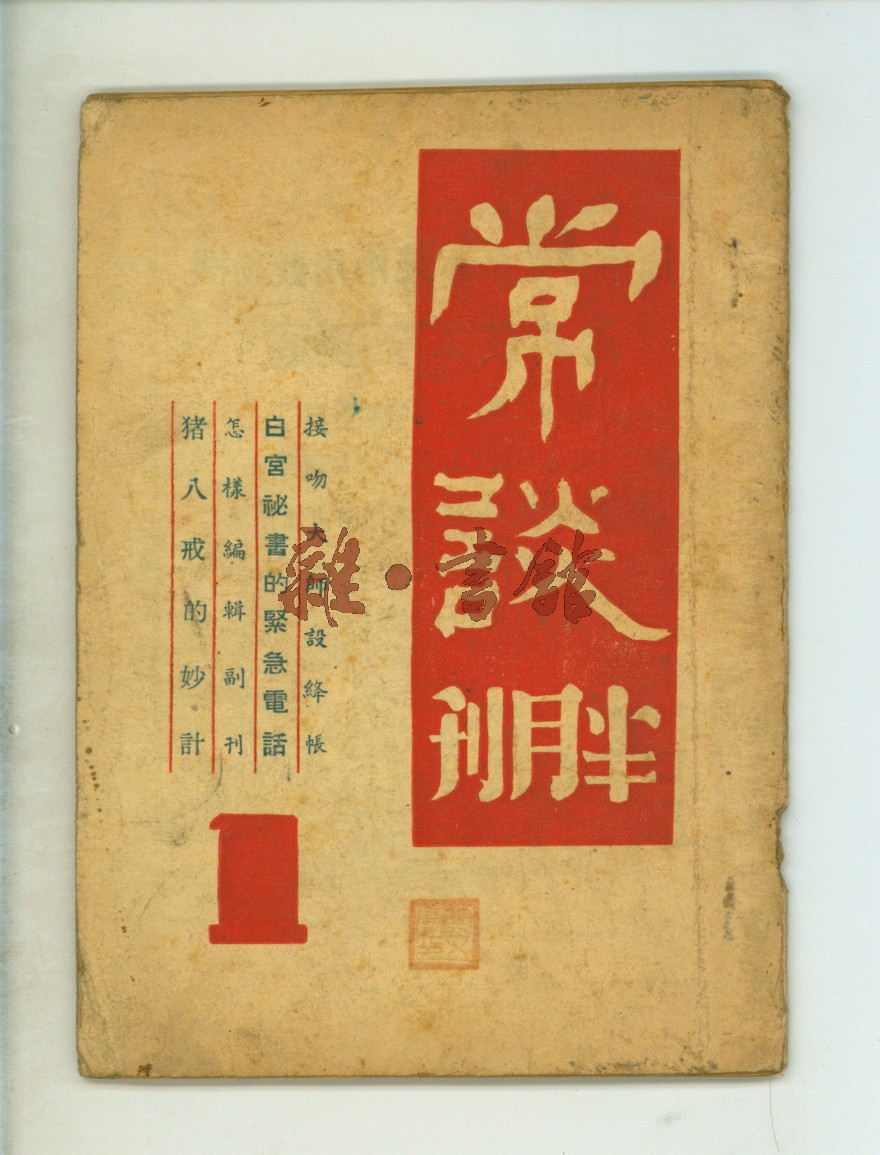 常談
半月刊
接吻大師設絳帳
白宮祕書的緊急電話
怎樣編輯副刊
猪八戒的妙計
1
雜·書館